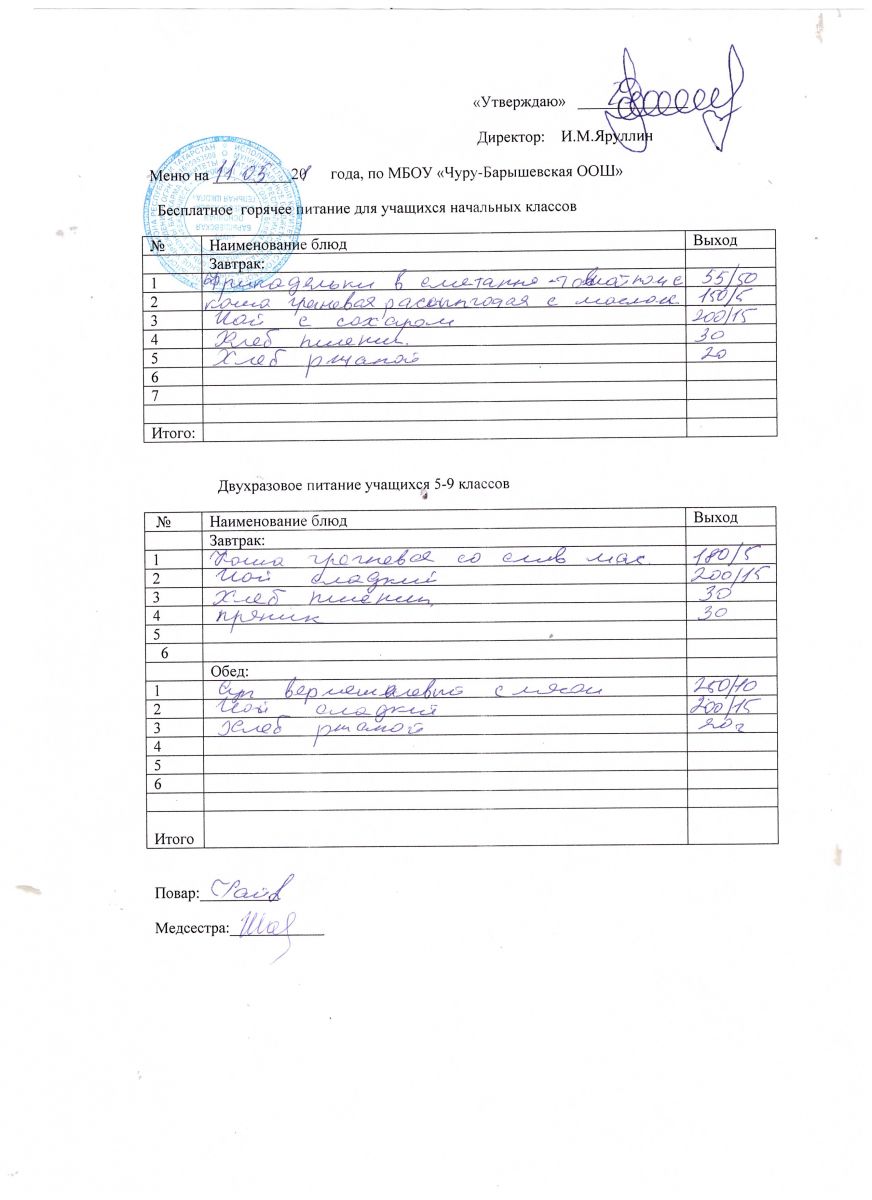 «Утверждаю»
Директор: И.М.Яруллин
Меню на 11.05 20 года, по МБОУ «Чуру-Барышевская ООШ»
Бесплатное горячее питание для учащихся начальных классов
№ Наименование блюд Выход
Завтрак:
1 Фрикадельки в сметанно- 55/50
2 каша гречневая рассыпчатая с маслом 150/5
3 Чай с сахаром 200/15
4 Хлеб пшенич. 30
5 Хлеб ржаной 20
6
7
Итого:
Двухразовое питание учащихся 5-9 классов
№ Наименование блюд Выход
Завтрак:
1 Каша гречневая со слив мас. 180/5
2 Чай сладкий 200/15
3 Хлеб пшениц 30
4 пряник 30
5
6
Обед:
1 Суп вермешелевый с мясом 250/10
2 Чай сладкий 200/15
3 Хлеб ржаной 20г
4
5
6
Итого
Повар:
Медсестра: